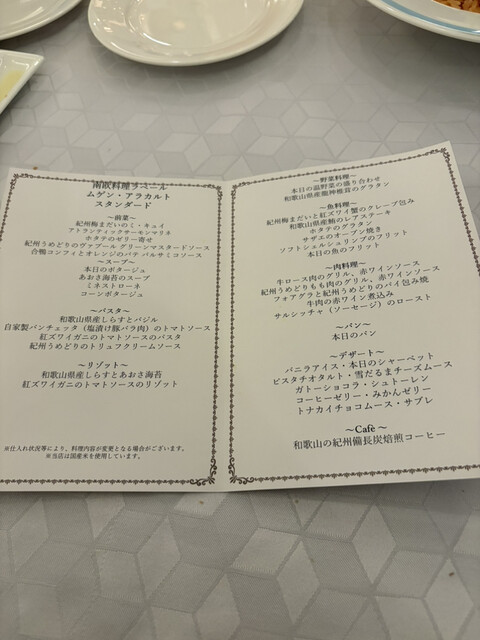 南欧料理ラベール
ムゲン・アラカルト
スタンダード
～前菜～
紀州梅まだいのミ・キュイ
アトランティックサーモンマリネ
ホタテのゼリー寄せ
紀州うめどりのヴァプール グリーンマスタードソース
合鴨コンフィとオレンジのパテ バルサミコソース
～スープ～
本日のポタージュ
あおさ海苔のスープ
ミネストローネ
コーンポタージュ
～パスタ～
和歌山県産しらすとバジル
自家製パンチェッタ（塩漬け豚バラ肉）のトマトソース
紅ズワイガニのトマトソースのパスタ
紀州うめどりのトリュフクリームソース
～リゾット～
和歌山県産しらすとあおさ海苔
紅ズワイガニのトマトソースのリゾット
※仕入れ状況等により、料理内容が変更となる場合がございます。
※当店は国産米を使用しています。
～野菜料理～
本日の温野菜の盛り合わせ
和歌山県産龍神椎茸のグラタン
～魚料理～
紀州梅まだいと紅ズワイ蟹のクレープ包み
和歌山県産鮪のレアステーキ
ホタテのグラタン
サザエのオーブン焼き
ソフトシェルシュリンプのフリット
本日の魚のフリット
～肉料理～
牛ロース肉のグリル、赤ワインソース
紀州うめどりもも肉のグリル、赤ワインソース
フォアグラと紀州うめどりのパイ包み焼
牛肉の赤ワイン煮込み
サルシッチャ（ソーセージ）のロースト
～パン～
本日のパン
～デザート～
バニラアイス・本日のシャーベット
ピスタチオタルト・雪だるまチーズムース
ガトーショコラ・シュトーレン
コーヒーゼリー・みかんゼリー
トナカイチョコムース・サブレ
～Cafè～
和歌山の紀州備長炭焙煎コーヒー